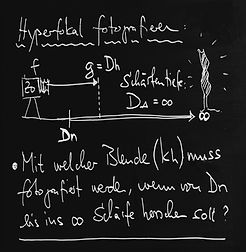 Hyperfokal fotografieren:
f
g = Dh
20
Schärfentiefe:
D∆ = ∞
Dn
∞
• Mit welcher Blende (kh) muss
fotografiert werden, wenn von Dn
bis ins ∞ Schärfe herrschen soll?